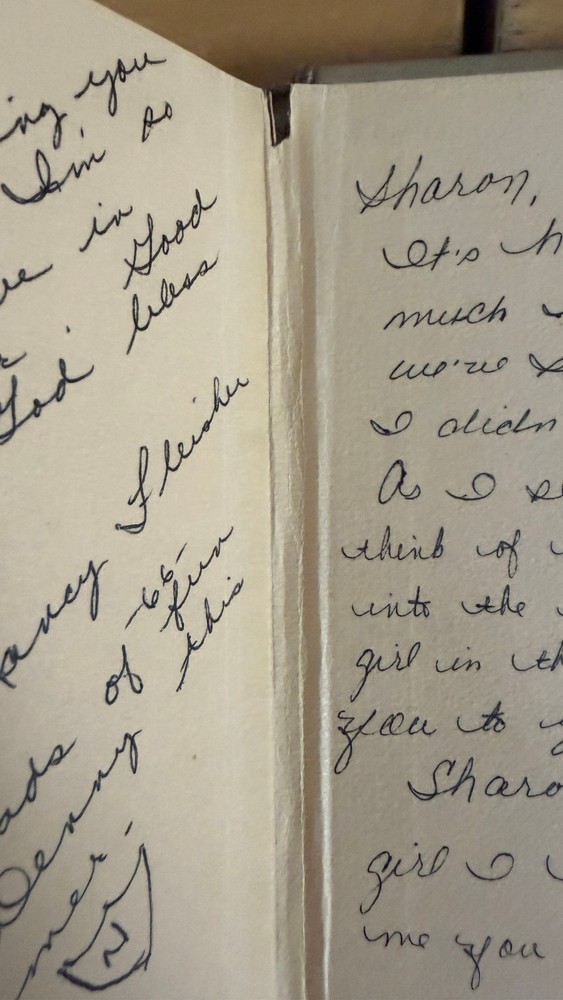 ing you
I'm so
ve in
Good
God bless
ancy Fleisher
-66-
of fun
this
ads
Denny
mer.
Sharon,
It's h
much
we're s
I didn
As I se
think of
into the
girl in th
you to y
Sharo
girl I
me you